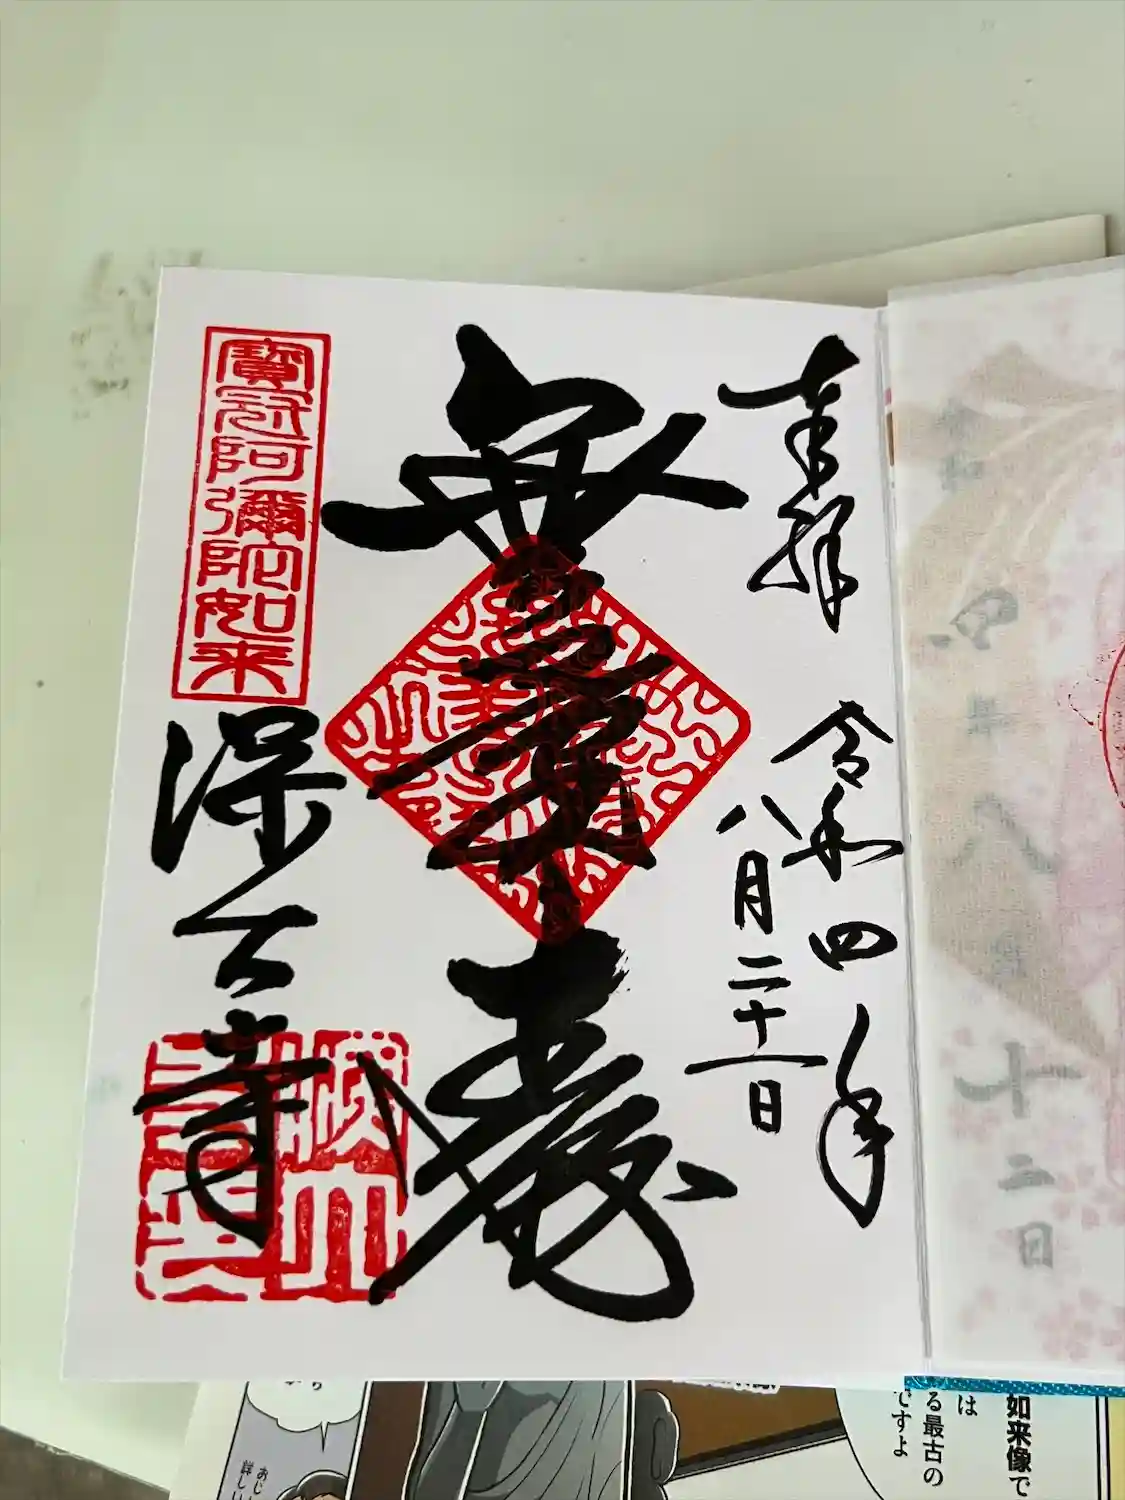 奉拝
令和四年
八月二十一日
無量壽
寶冠阿彌陀如来
深大寺
十二日
如来像で
は
る最古の
ですよ